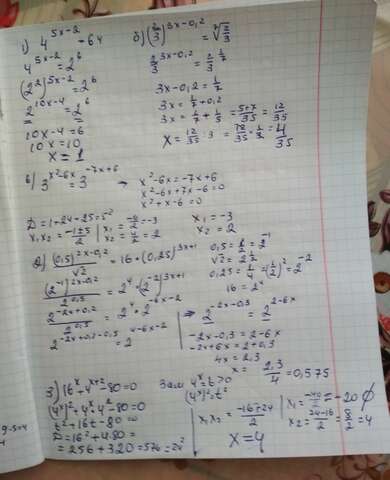 1) 4^(5x-2) = 64
4^(5x-2) = 2^6
(2^2)^(5x-2) = 2^6
2^(10x-4) = 2^6
10x-4=6
10x=10
x=1
б) (2/3)^(3x-0,2) = ⁷√(2/3)
2/3^(3x-0,2) = 2/3^(1/7)
3x-0,2=1/7
3x=1/7+0,2
3x=1/7+1/5=(5+7)/35=12/35
x=12/35:3=12/35·1/3=4/35
в) 3^(x^2-6x) = 3^(-7x+6)
→ x^2-6x=-7x+6
x^2-6x+7x-6=0
x^2+x-6=0
D=1+24=25=5^2
x1x2=(-1±5)/2
x1=-6/2=-3
x2=4/2=2
x1=-3
x2=2
2) (0,5)^(2x-0,2)/√2 = 16·(0,25)^(3x+1)
0,5=1/2=2^(-1)
√2=2^(1/2)
0,25=1/4=(1/2)^2=2^(-2)
16=2^4
(2^(-1))^(2x-0,2)/2^(0,5) = 2^4·(2^(-2))^(3x+1)
2^(-2x+0,2)/2^(0,5) = 2^4·2^(-6x-2)
2^(-2x+0,2-0,5) = 2^(4-6x-2)
2^(-2x-0,3) = 2^(2-6x)
-2x-0,3=2-6x
-2x+6x=2+0,3
4x=2,3
x=2,3/4=0,575
3) 16^x+4^(x+2)-80=0
Зам 4^x=t>0
(4^x)^2=t^2
(4^x)^2+4^x·4^2-80=0
t^2+16t-80=0
D=16^2+4·80=
=256+320=576=24^2
x1x2=(-16±24)/2
x1=-40/2=-20 ∅
x2=(24-16)/2=8/2=4
x=4